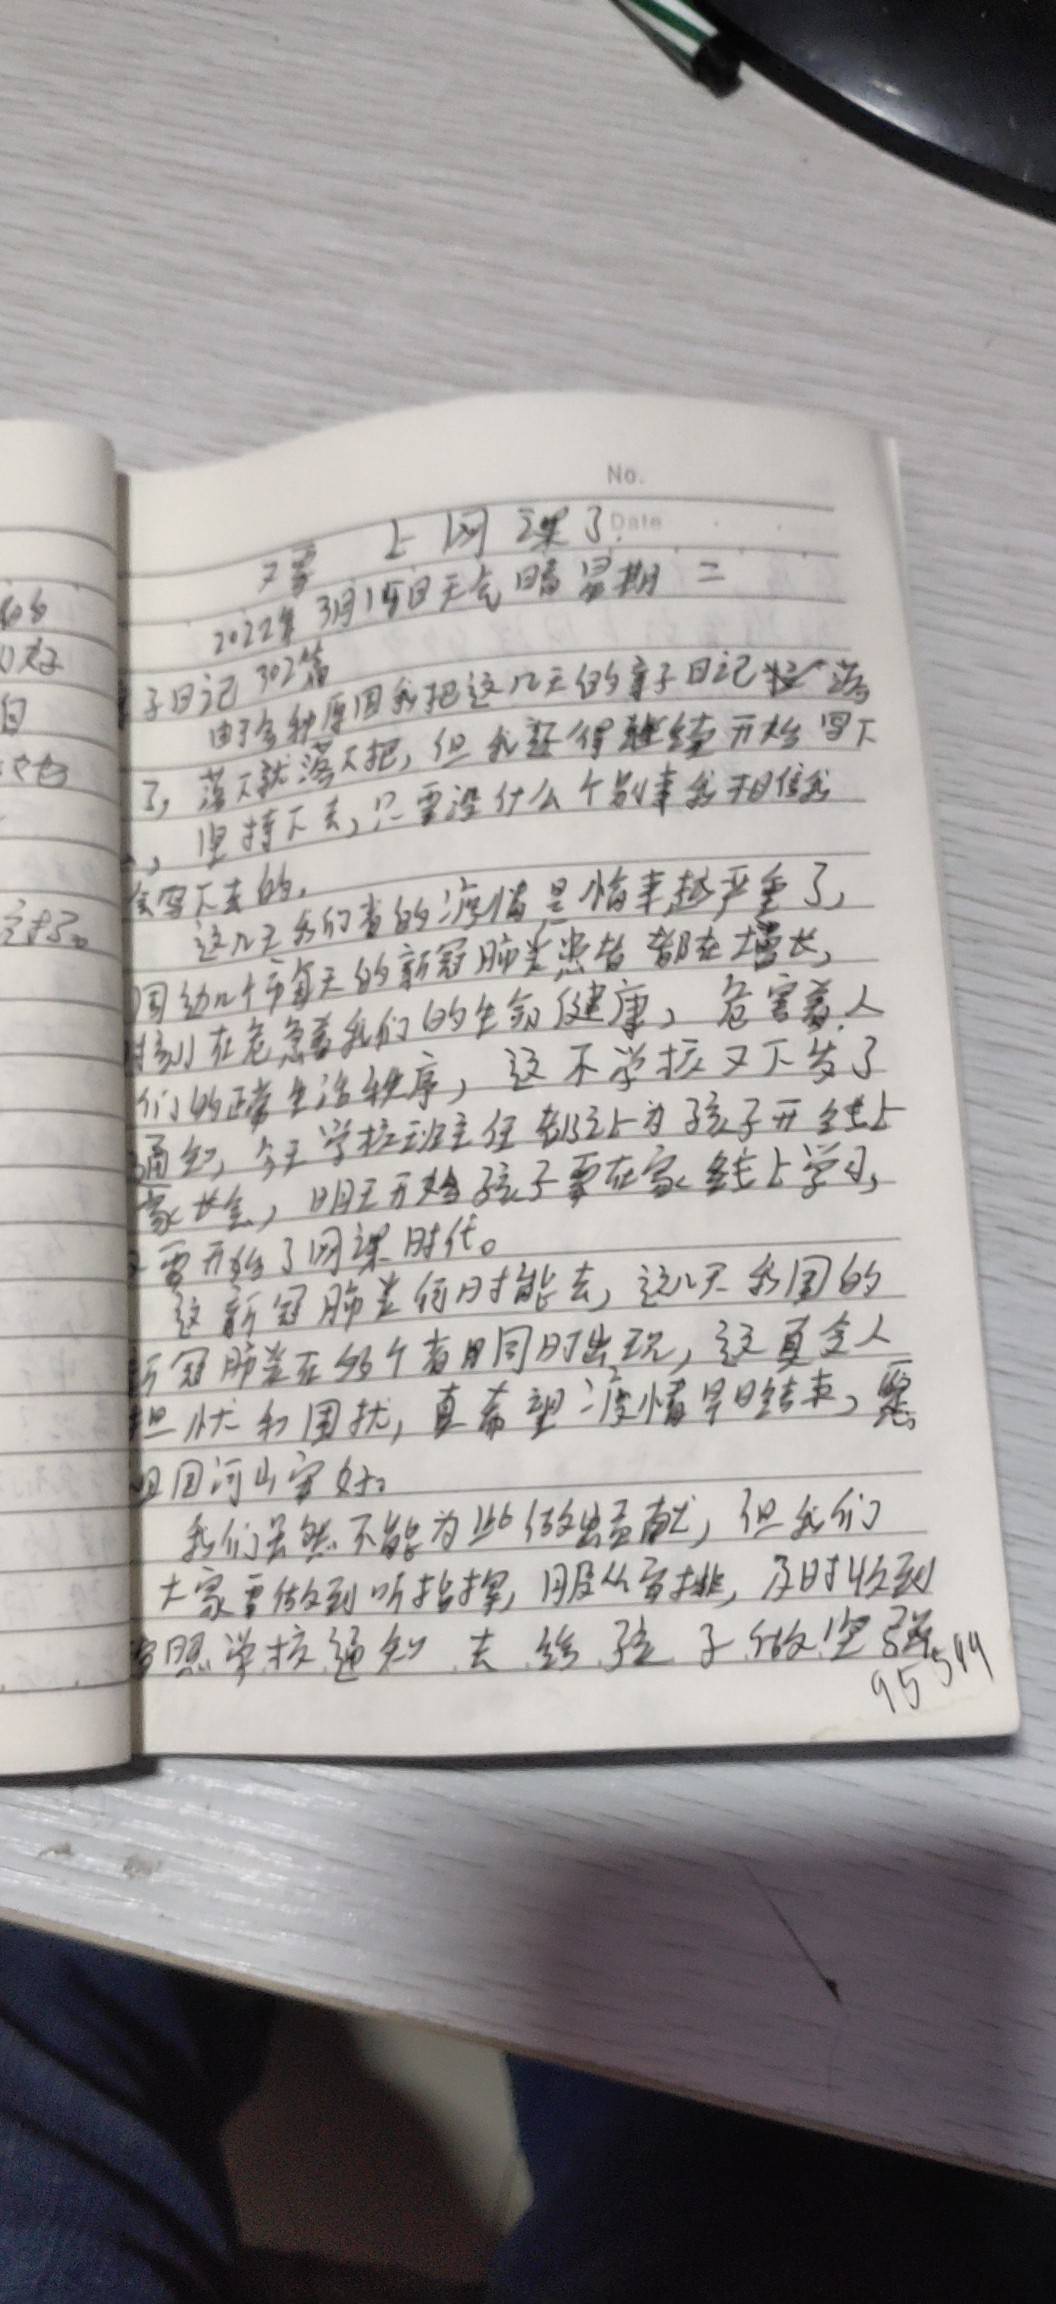 No.
Date
又要 上网课了
2022年3月15日天气晴 星期二
子日记302篇
由于多种原因我把这几天的亲子日记 落
了，落下就落下把，但我还得继续开始写下
，坚持下去，只要没什么个别事我相信我
会写下去的。
这几天我们省的疫情是 越严重了，
周边几个市每天的新冠肺炎患者都在增长，
时刻在危急着我们的生命健康，危害着人
们的正常生活秩序，这不学校又下发了
通知，今天学校班主任 线上为孩子开线上
家长会，明天开始孩子要在家线上学习，
又要开始了网课时代。
这新冠肺炎何时能去，这几天我国的
新冠肺炎在 个省 同时出现，这真令人
担忧和困扰，真希望疫情早日结束，愿
祖国河山安好。
我们虽然不能为此做出贡献，但我们
大家要做到听指挥，服从安排，及时收到
学校通知 去给孩子做坚强
95549
的
好
自